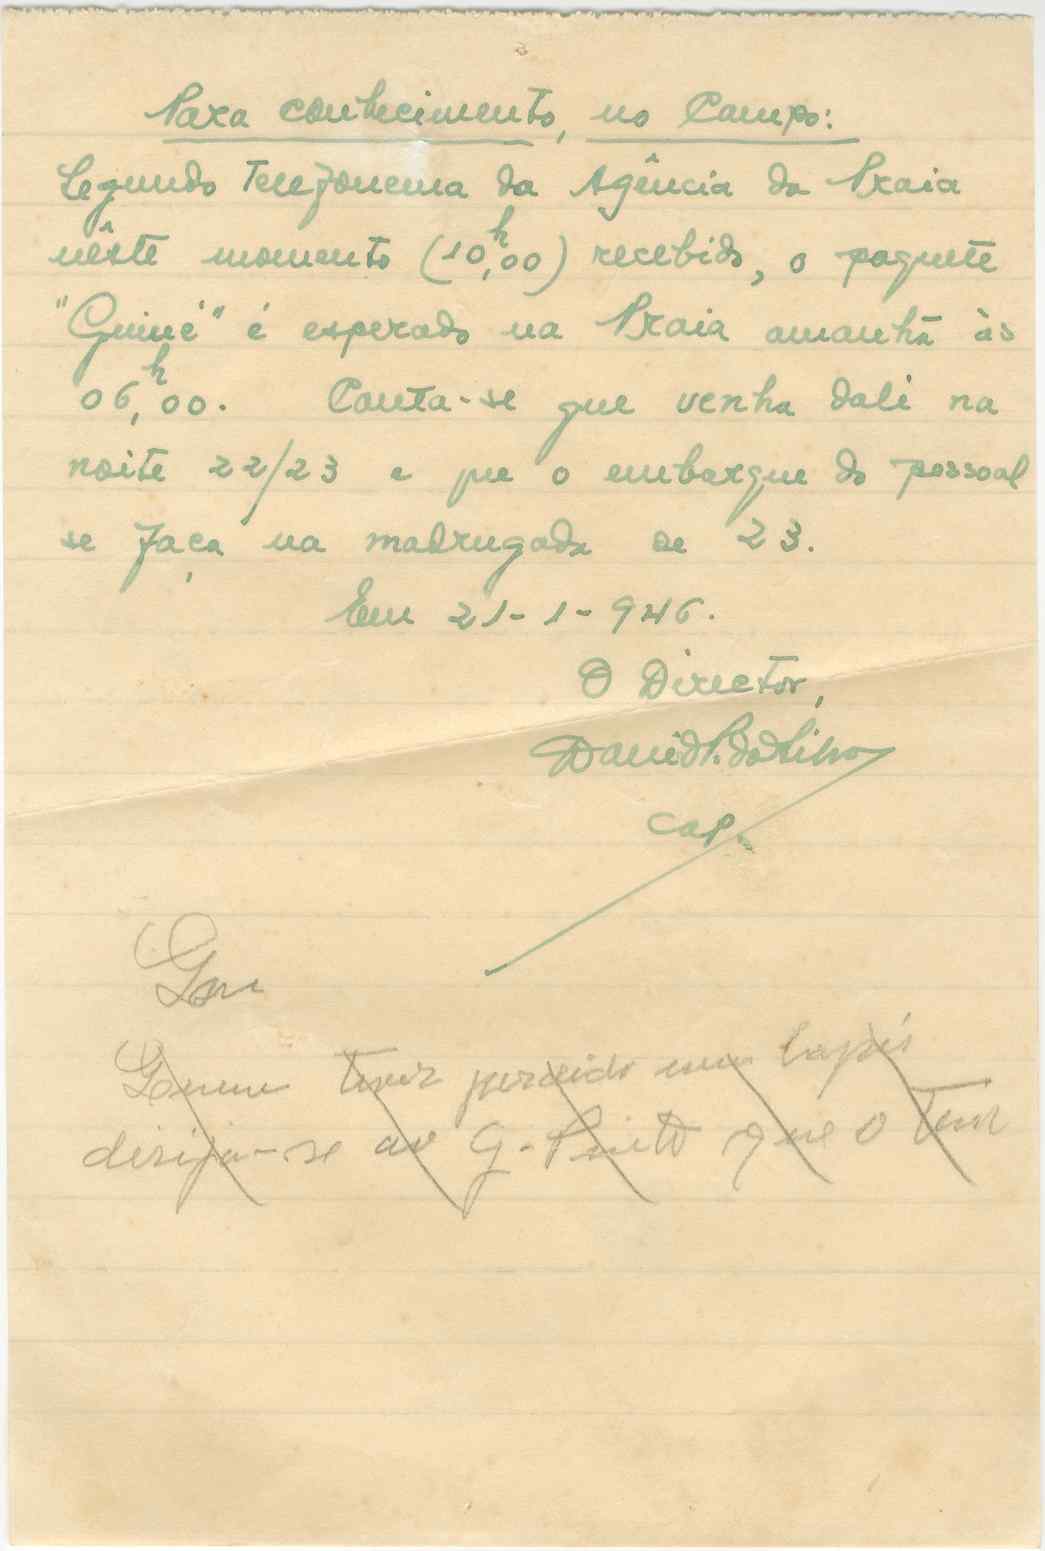 Para conhecimento, no Campo:
Segundo telefonema da Agência da Praia
nêste momento (10,h00) recebido, o paquete
"Guiné" é esperado na Praia amanhã às
06,h00. Conta-se que venha dali na
noite 22/23 e que o embarque do pessoal
se faça na madrugada de 23.
Em 21-1-946.
O Director,
David P. da Silva
Cap.
Quem tiver perdido um lapis
dirija-se ao G. Pinto que o tem